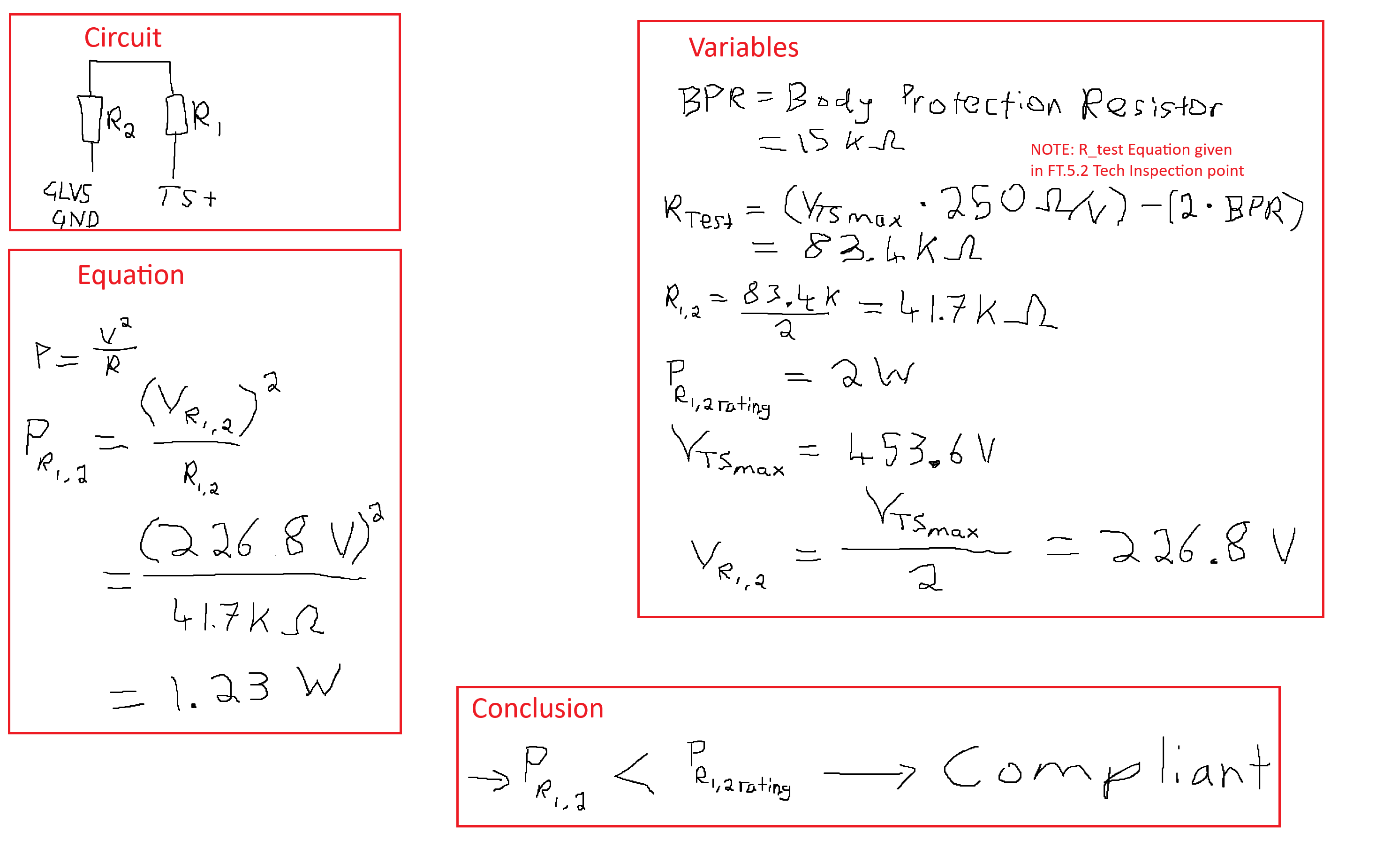 Circuit
R2
R1
GLVS
GND
TS+
Equation
P = V²/R
P_R1,2 = (V_R1,2)²/R1,2
= (226.8 V)²/41.7K Ω
= 1.23 W
Variables
BPR = Body Protection Resistor
= 15 kΩ
NOTE: R_test Equation given
in FT.5.2 Tech Inspection point
R_Test = (V_TSmax · 250 Ω/V) - (2 · BPR)
= 83.4K Ω
R1,2 = 83.4K/2 = 41.7K Ω
P_R1,2 rating = 2 W
V_TSmax = 453.6 V
V_R1,2 = V_TSmax/2 = 226.8 V
Conclusion
→ P_R1,2 < P_R1,2 rating → Compliant